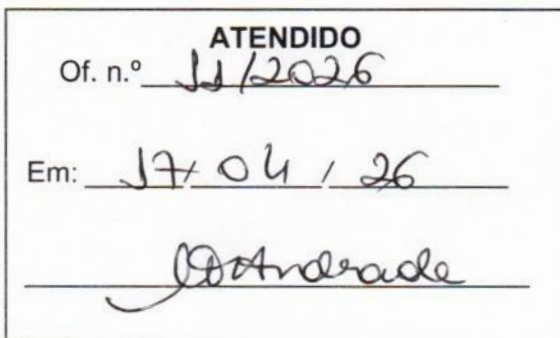 ATENDIDO
Of. n.º 11/2026
Em: 17/04/26
Andrade